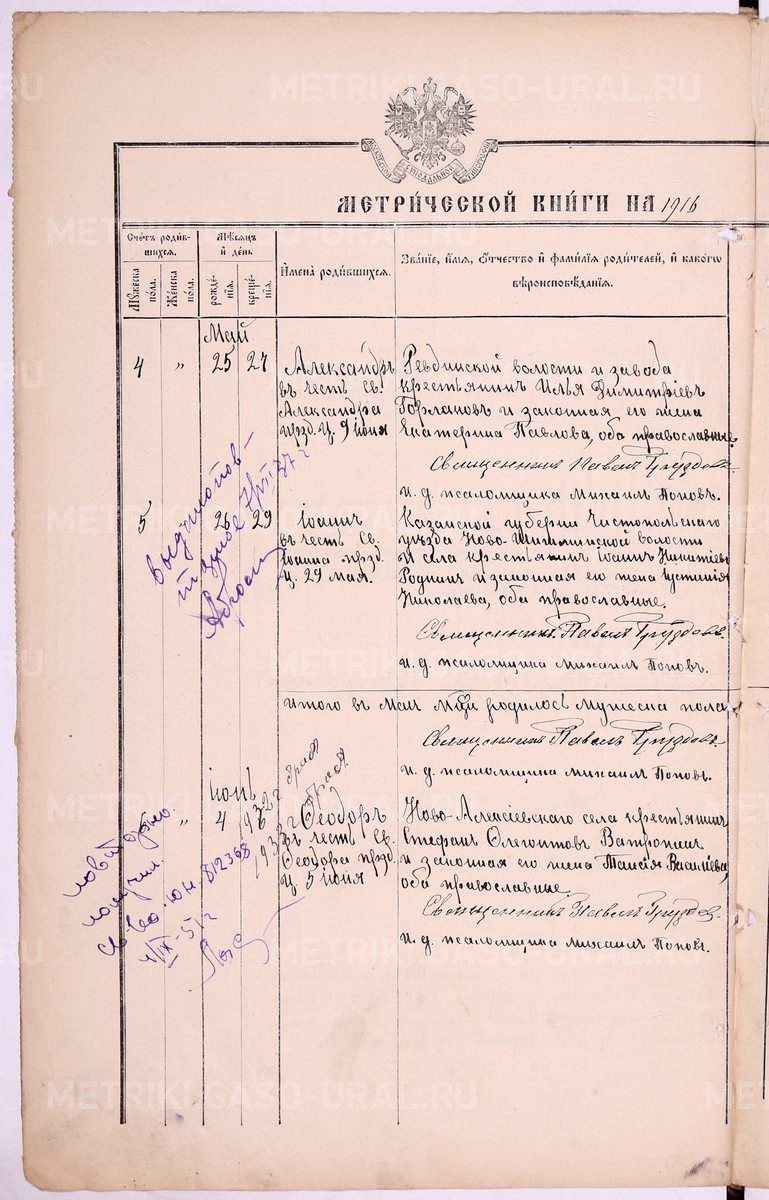 МЕТРИ́ЧЕСКОЙ КНИ́ГИ НА 1916
Сче́тъ роди́в-
шихся.
Мѣ́сяцъ
и҆ де́нь
И҆мена̀ роди́вшихся.
Зва́нїе, и҆́мя, ѻ҆́тчество и҆ фами́лїя роди́телей, и҆ како́гѡ
вѣроисповѣ́данїя.
Му́жеска
по́ла.
Же́нска
по́ла.
рожде́-
нїя.
креще́-
нїя.
Май
4 " 25 27 Александръ
въ честь Св.
Александра
прзд. Ц. 9 іюня
Ревдинской волости и завода
крестьянинъ Илья Димитріевъ
Горлановъ и законная его жена
Екатерина Павлова, оба православные.
Священникъ Павелъ Груздевъ.
и. д. псаломщика Михаилъ Поповъ.
5 " 26 29 Іоаннъ
въ честь Св.
Іоанна прзд.
Ц. 29 мая.
Казанской губерніи Чистопольскаго
уѣзда Ново-Шешминской волости
и села крестьянинъ Іоаннъ Никитіевъ
Роднинъ и законная его жена Іустинія
Николаева, оба православные.
Священникъ Павелъ Груздевъ.
и. д. псаломщика Михаилъ Поповъ.
Итого въ Маѣ мцѣ родилось мужеска пола
Священникъ Павелъ Груздевъ.
и. д. псаломщика Михаилъ Поповъ.
Іюнь
" 4 6 Ѳеодоръ
въ честь Св.
Ѳеодора прзд.
Ц 5 іюня
Ново-Алексіевскаго села крестьянинъ
Стефанъ Олегонтовъ Ватропинъ
и законная его жена Таисія Василіева,
оба православные.
Священникъ Павелъ Груздевъ.
и. д. псаломщика Михаилъ Поповъ.
выдано пов-
37 г
получил
св-во ю н. 812368
4/IX-51 г
METRIKI.GASO-URAL.RU